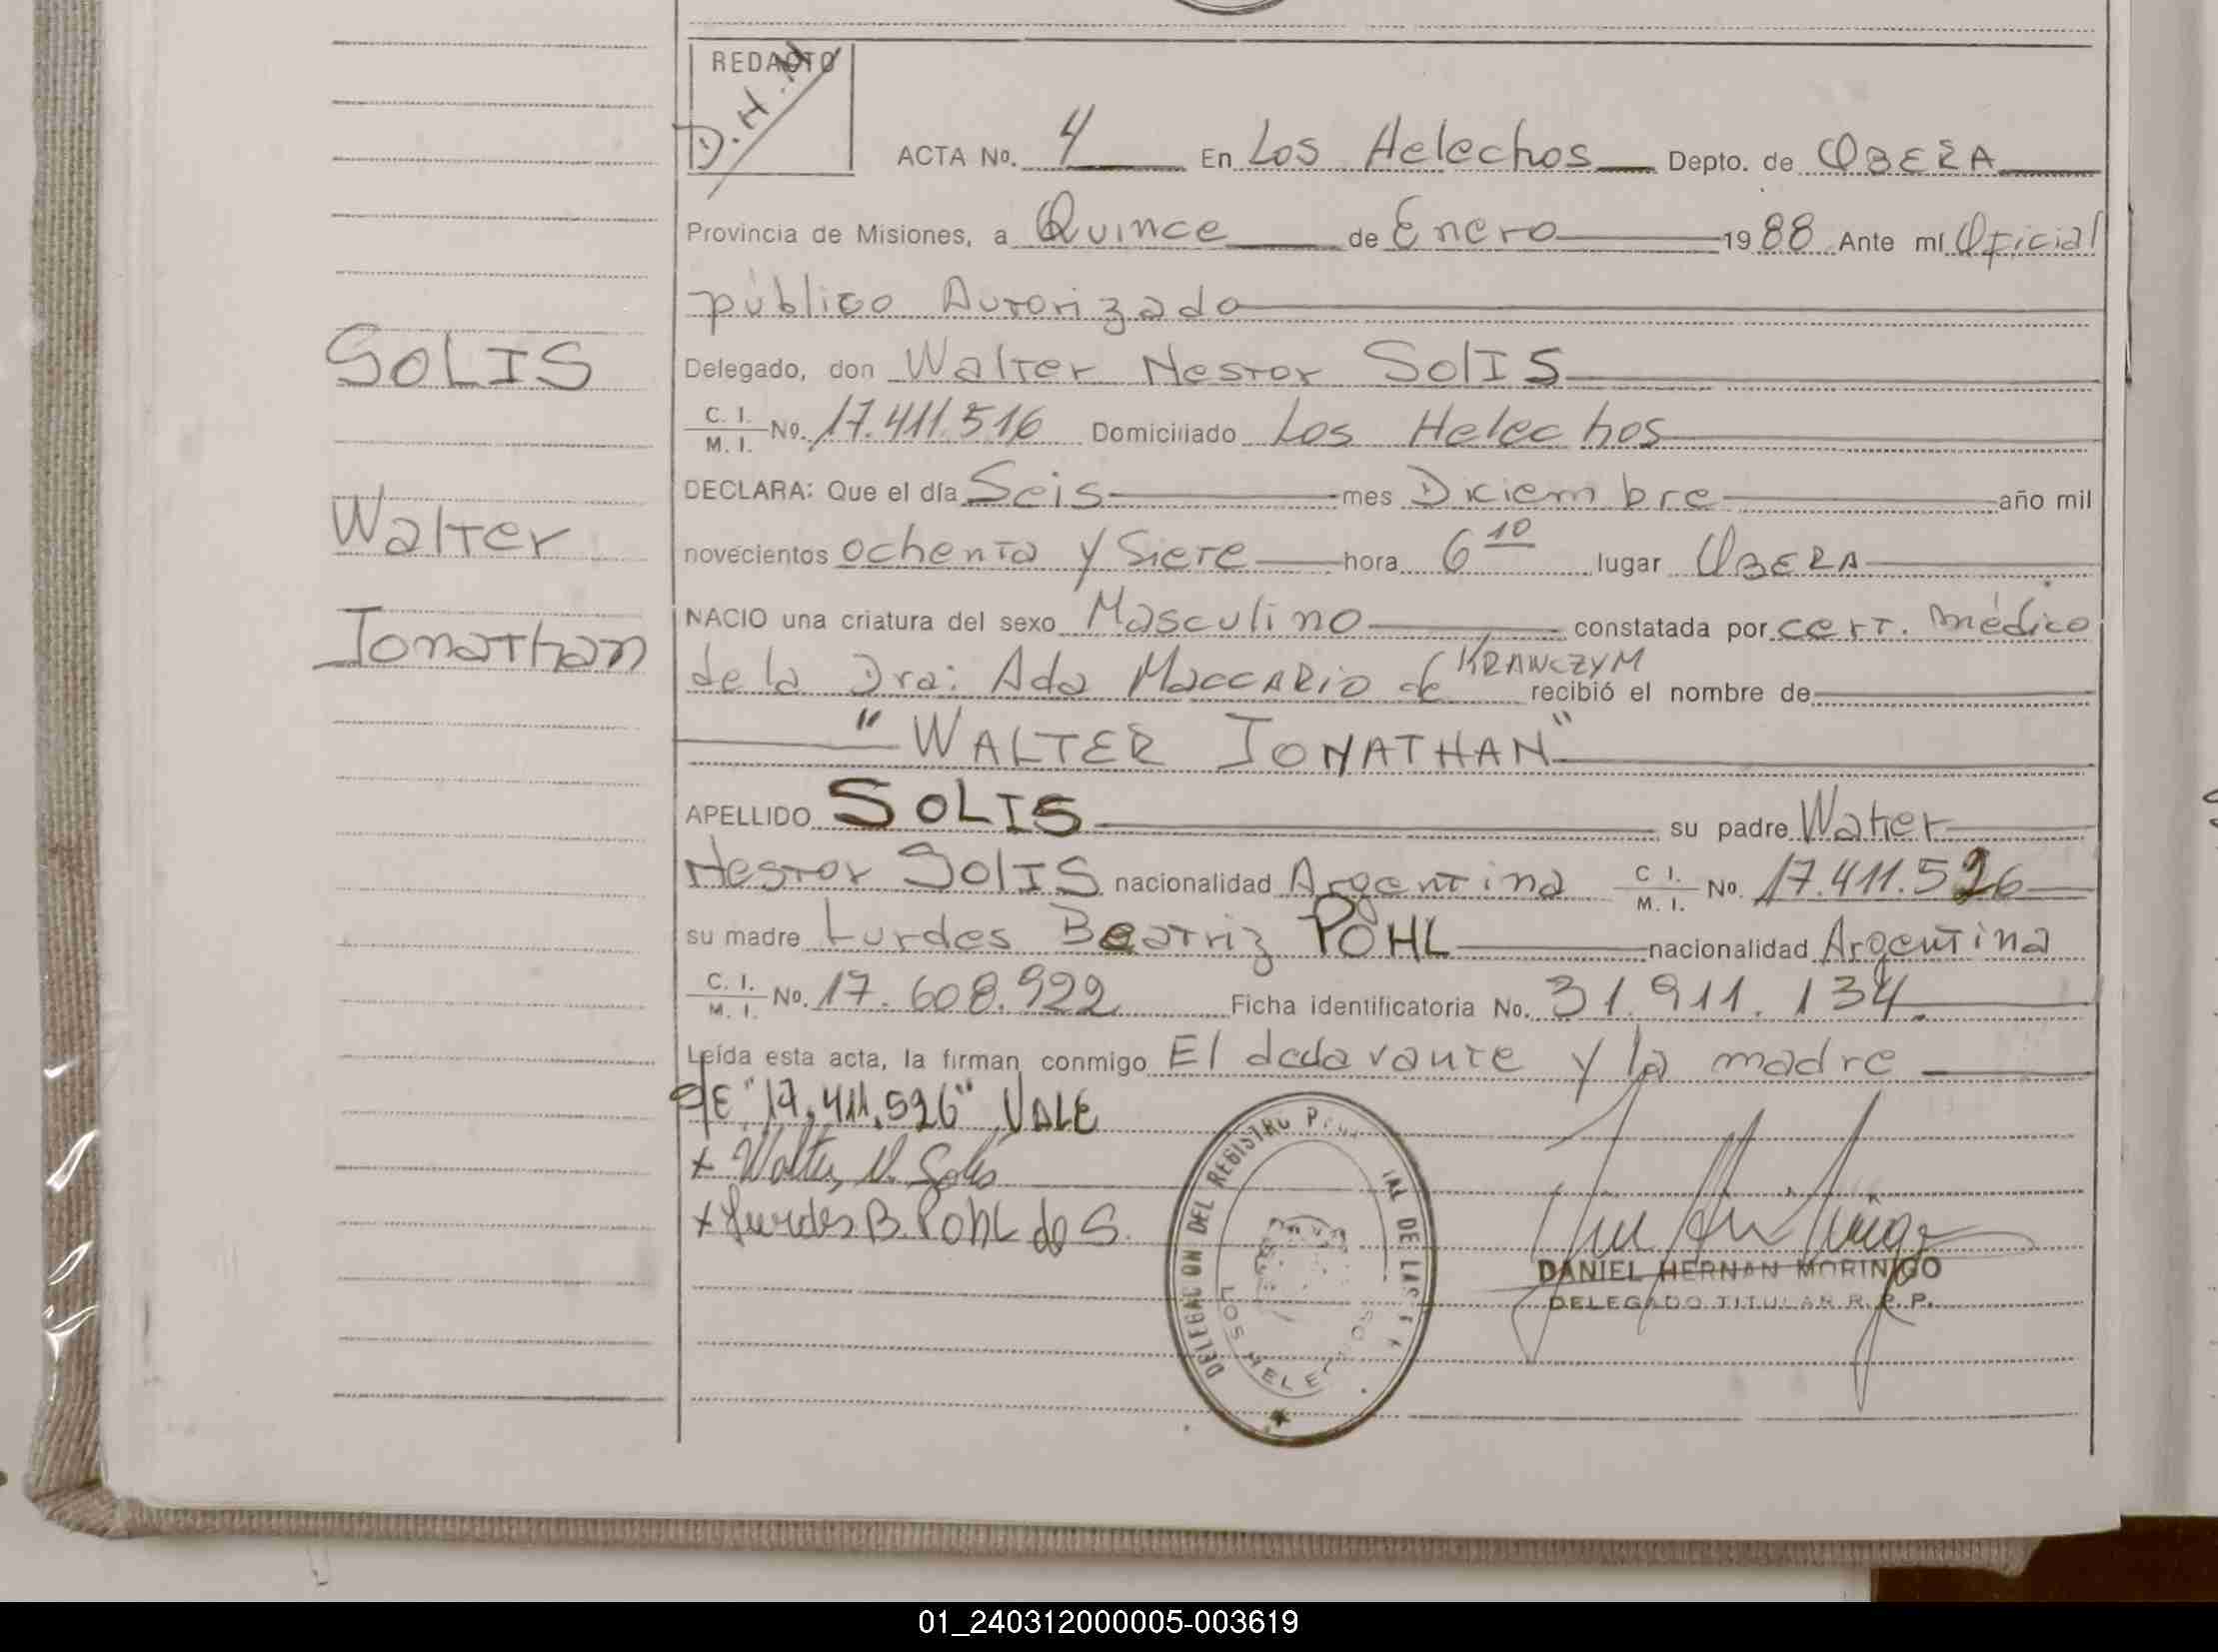 REDACTO
D.H.M
ACTA No. 4 En Los Helechos Depto. de OBERA
Provincia de Misiones, a Quince de Enero 1988 Ante mí Oficial
público Autorizado
Delegado, don Walter Nestor SolIS
C. I. M. I. No. 17.411.516 Domiciliado Los Helechos
DECLARA: Que el día Seis mes Diciembre año mil
novecientos ochenta y Siete hora 6 10 lugar OBERA
NACIO una criatura del sexo Masculino constatada por cert. médico
de la Dra: Ada MaccARio de KRAWCZYM recibió el nombre de
"WALTER JONATHAN"
APELLIDO SOLIS su padre Walter
Nestor SolIS nacionalidad Argentina C I. M. I. No. 17.411.526
su madre Lurdes Beatriz POHL nacionalidad Argentina
C. I. M. I. No. 17.608.922 Ficha identificatoria No. 31.911.134.
Leída esta acta, la firman conmigo El declarante y la madre
E "17,411,526" VALE
x Walter N. Solis
x Lurdes B. Pohl de S.
SOLIS
Walter
Jonathan
DELEGACION DEL REGISTRO DE LAS
LOS HELECHOS
DANIEL HERNAN MORINIGO
DELEGADO TITULAR R. P. P.
01_240312000005-003619